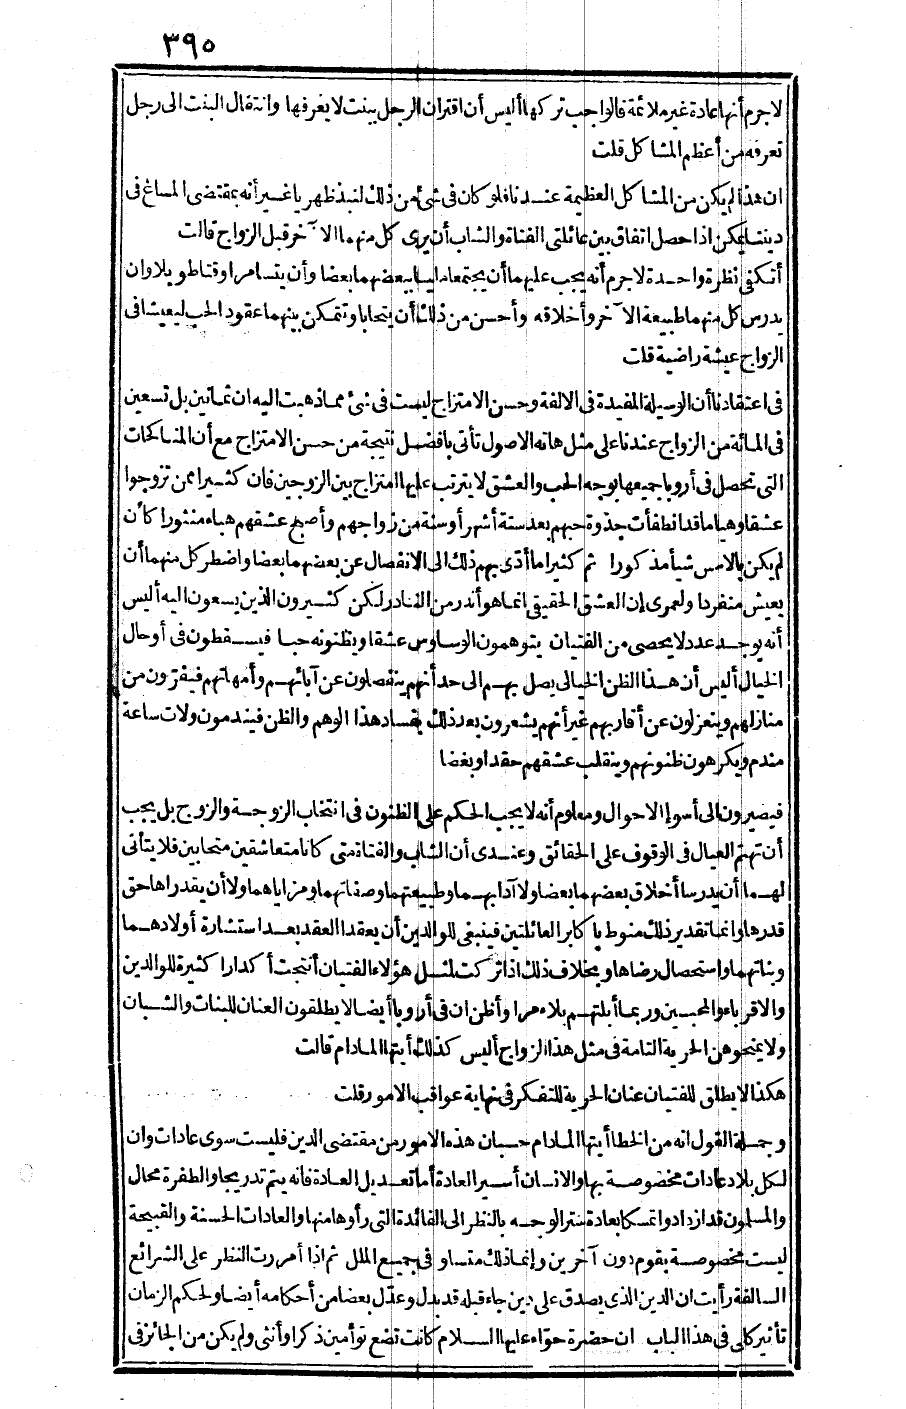 ٣٩٥
لاجرم أنها عادة غير ملائمة فالواجب تركها أليس أن اقتران الرجل ببنت لا يعرفها وانتقال البنت الى رجل
تعرفه من أعظم المشاكل قلت
ان هذا لم يكن من المشاكل العظيمة عندنا فلو كان فى شئ من ذلك لنبذ ظهريا غير أنه بمقتضى المساغ فى
ديننا يمكن اذا حصل اتفاق بين عائلتى الفتاة والشاب أن يرى كل منهما الآخر قبل الزواج قالت
أتكفى نظرة واحدة لاجرم أنه يجب عليهما أن يجتمعا مليا ببعضهما بعضا وأن يتسامرا وقتا طويلا وان
يدرس كل منهما طبيعة الآخر وأخلاقه وأحسن من ذلك أن يتحابا وتتمكن بينهما عقود الحب ليعيشا فى
الزواج عيشة راضية قلت
فى اعتقادنا أن الوسيلة المفيدة فى الالفة وحسن الامتزاج ليست فى شئ مما ذهبت اليه ان ثمانين بل تسعين
فى المائة من الزواج عندنا على مثل هاته الاصول تأتى بافضل نتيجة من حسن الامتزاج مع أن المناكحات
التى تحصل فى أروبا جميعها بوجه الحب والعشق لا يترتب عليها امتزاج بين الزوجين فان كثيرا ممن تزوجوا
عشقا وهياما قد انطفأت جذوة حبهم بعد ستة أشهر أو سنة من زواجهم وأصبح عشقهم هباء منثورا كأن
لم يكن بالامس شيأ مذكورا ثم كثيرا ما أدى بهم ذلك الى الانفصال عن بعضهما بعضا واضطر كل منهما أن
يعيش منفردا ولعمرى ان العشق الحقيقى انما هو أندر من النادر لكن كثيرون الذين يسعون اليه أليس
أنه يوجد عدد لا يحصى من الفتيان يتوهمون الوساوس عشقا ويظنونه حبا فيسقطون فى أوحال
الخيال أليس أن هذا الظن الخيالى يصل بهم الى حد أنهم ينفصلون عن آبائهم وأمهاتهم فيفرّون من
منازلهم وينعزلون عن أقاربهم غير أنهم يشعرون بعد ذلك بفساد هذا الوهم والظن فيندمون ولات ساعة
مندم ويكرهون ظنونهم وينقلب عشقهم حقدا وبغضا
فيصيرون الى أسوإ الاحوال ومعلوم أنه لا يجب الحكم على الظنون فى انتخاب الزوجة والزوج بل يجب
أن تهتم العيال فى الوقوف على الحقائق وعندى أن الشاب والفتاة متى كانا متعاشقين متحابين فلا يتأتى
لهما أن يدرسا أخلاق بعضهما بعضا ولا آدابهما وطبيعتهما وصفاتهما ومزاياهما ولا أن يقدراها حق
قدرها وانما تقدير ذلك منوط باكابر العائلتين فينبغى للوالدين أن يعقدا العقد بعد استشارة أولادهما
وبناتهما واستحصال رضاها وبخلاف ذلك اذا تركت لمثل هؤلاء الفتيان أنتجت أكدارا كثيرة للوالدين
والاقرباء والمحبين وربما أبلتهم بلاء مرا وأظن ان فى أروبا أيضا لا يطلقون العنان للبنات والشبان
ولا يمنحوهن الحرية التامة فى مثل هذا الزواج أليس كذلك أيتها المادام قالت
هكذا لا يطلق للفتيان عنان الحرية للتفكر فى نهاية عواقب الامور قلت
وجملة القول انه من الخطا أيتها المادام حسبان هذه الامور من مقتضى الدين فليست سوى عادات وان
لكل بلاد عادات مخصوصة بها والانسان أسير العادة أما تعديل العادة فانه يتم تدريجا والطفرة محال
والمسلمون قد ازدادوا تمسكا بعادة ستر الوجه بالنظر الى الفائدة التى رأوها منها والعادات الحسنة والقبيحة
ليست مخصوصة بقوم دون آخرين وإنما ذلك متساو فى جميع الملل ثم اذا أمررت النظر على الشرائع
السالفة رأيت ان الدين الذى يصدق على دين جاء قبله قد بدل وعدّل بعضا من أحكامه أيضا ولحكم الزمان
تأثير كلى فى هذا الباب ان حضرة حوّاء عليها السلام كانت تضع توأمين ذكرا وأنثى ولم يكن من الجائز فى